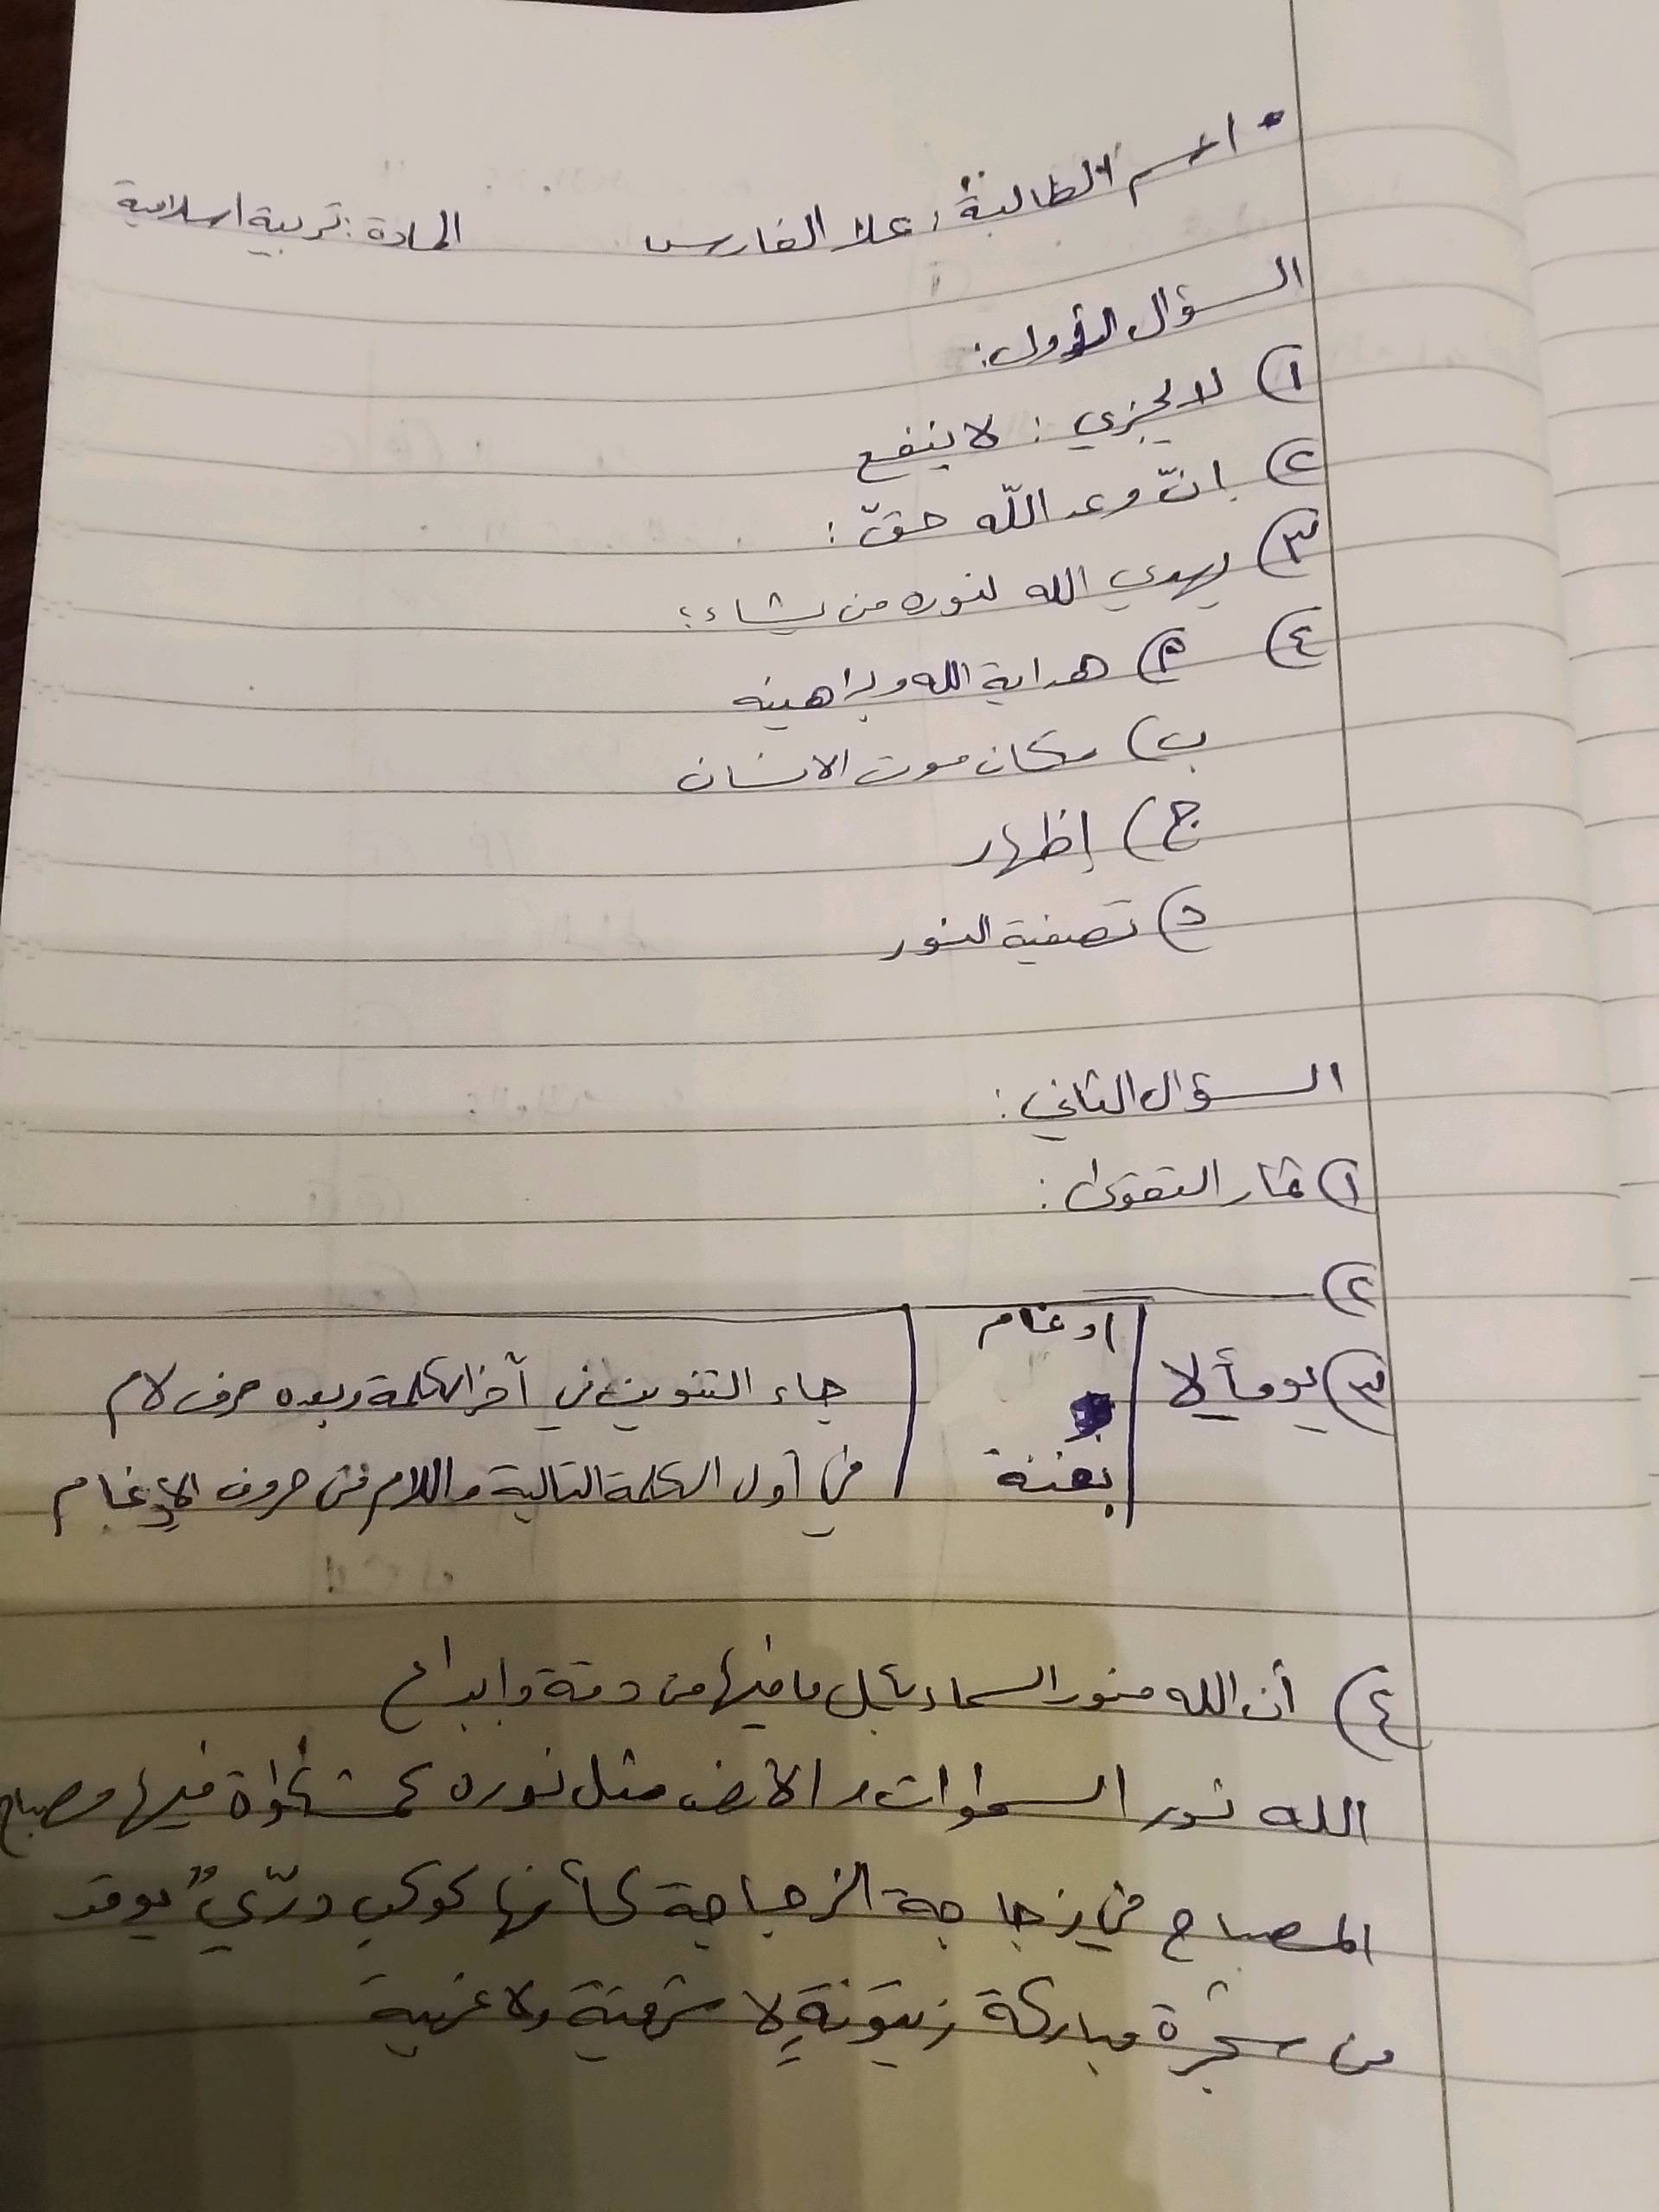 اسم الطالبة: علا الفارس المادة: تربية اسلامية
السؤال الأول:
١) لا يجزي: لا ينفع
٢) انّ وعد اللّه حقّ:
٣) يهدي الله لنوره من يشاء:
٤) أ) هداية الله وبراهينه
ب) مكان موت الانسان
ج) إظهار
د) تصفية النور
السؤال الثاني:
١) ثمار التقوى:
٢)
ادغام
٣) يوماً لا بغنة جاء التنوين في آخر الكلمة وبعده حرف لام
في أول الكلمة التالية واللام من حروف الإدغام
٤) أن الله منور السماء بكل ما فيها من دقة وابداع
الله نور السموات والارض مثل نوره كمشكواة فيها مصباح
المصباح في زجاجة الزجاجة كأنها كوكب درّيٌ يوقد
من شجرة مباركة زيتونةٍ لا شرقية ولا غربية